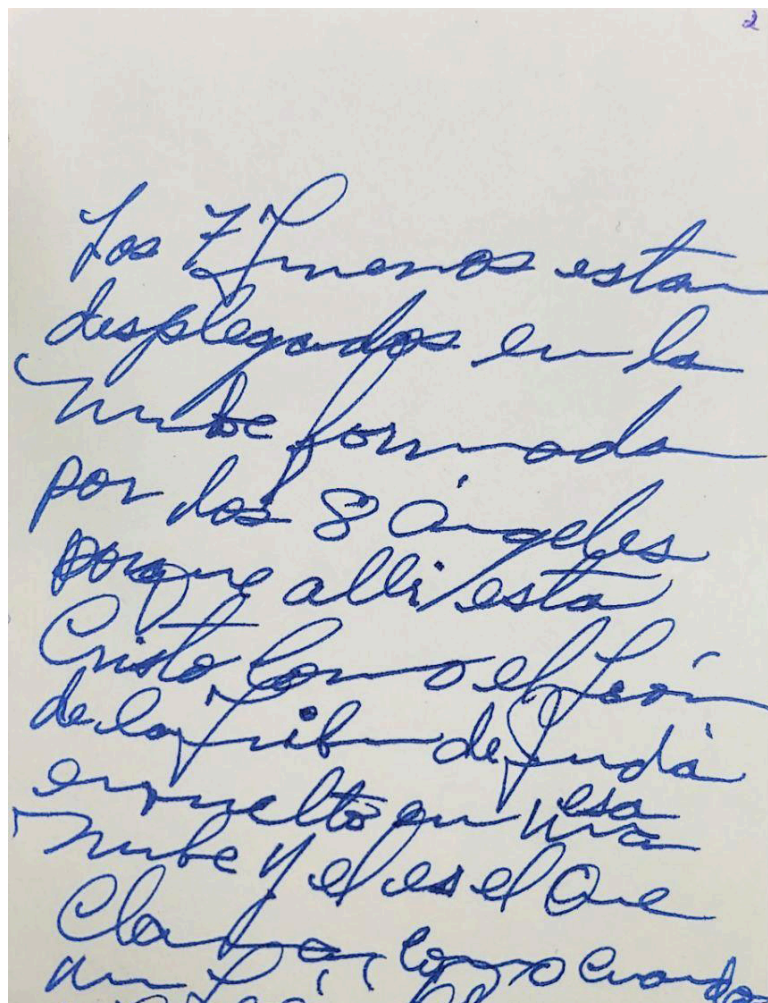 2
Los 7 Truenos estan
desplegados en la
Nube formada
por los 8 Ángeles
porque alli esta
Cristo Como el León
de la Tribu de Judá
envuelto en esa
una
Nube y el es el Que
Clama Como Cuando
un